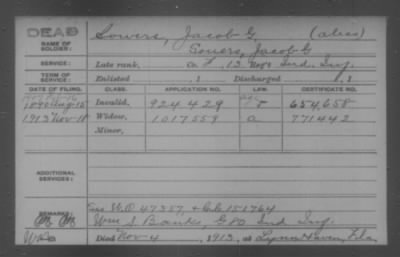 DEAD
NAME OF SOLDIER: Sowers, Jacob G. (alias)
Souers, Jacob G
SERVICE: Late rank, Co. F, 13 Reg't Ind. Inf.
TERM OF SERVICE: Enlisted , 1 Discharged , 1
DATE OF FILING. CLASS. APPLICATION NO. LAW. CERTIFICATE NO.
1890 Aug 15 Invalid, 924429 654,658
1913 Nov 18 Widow, 1017559 a 771442
Minor,
ADDITIONAL SERVICES:
See W.O 47357, + C.C. 151764
REMARKS: Wm S. Banks, G 80 Ind Inf.
Died Nov 4, 1913, at Lynn Haven, Fla